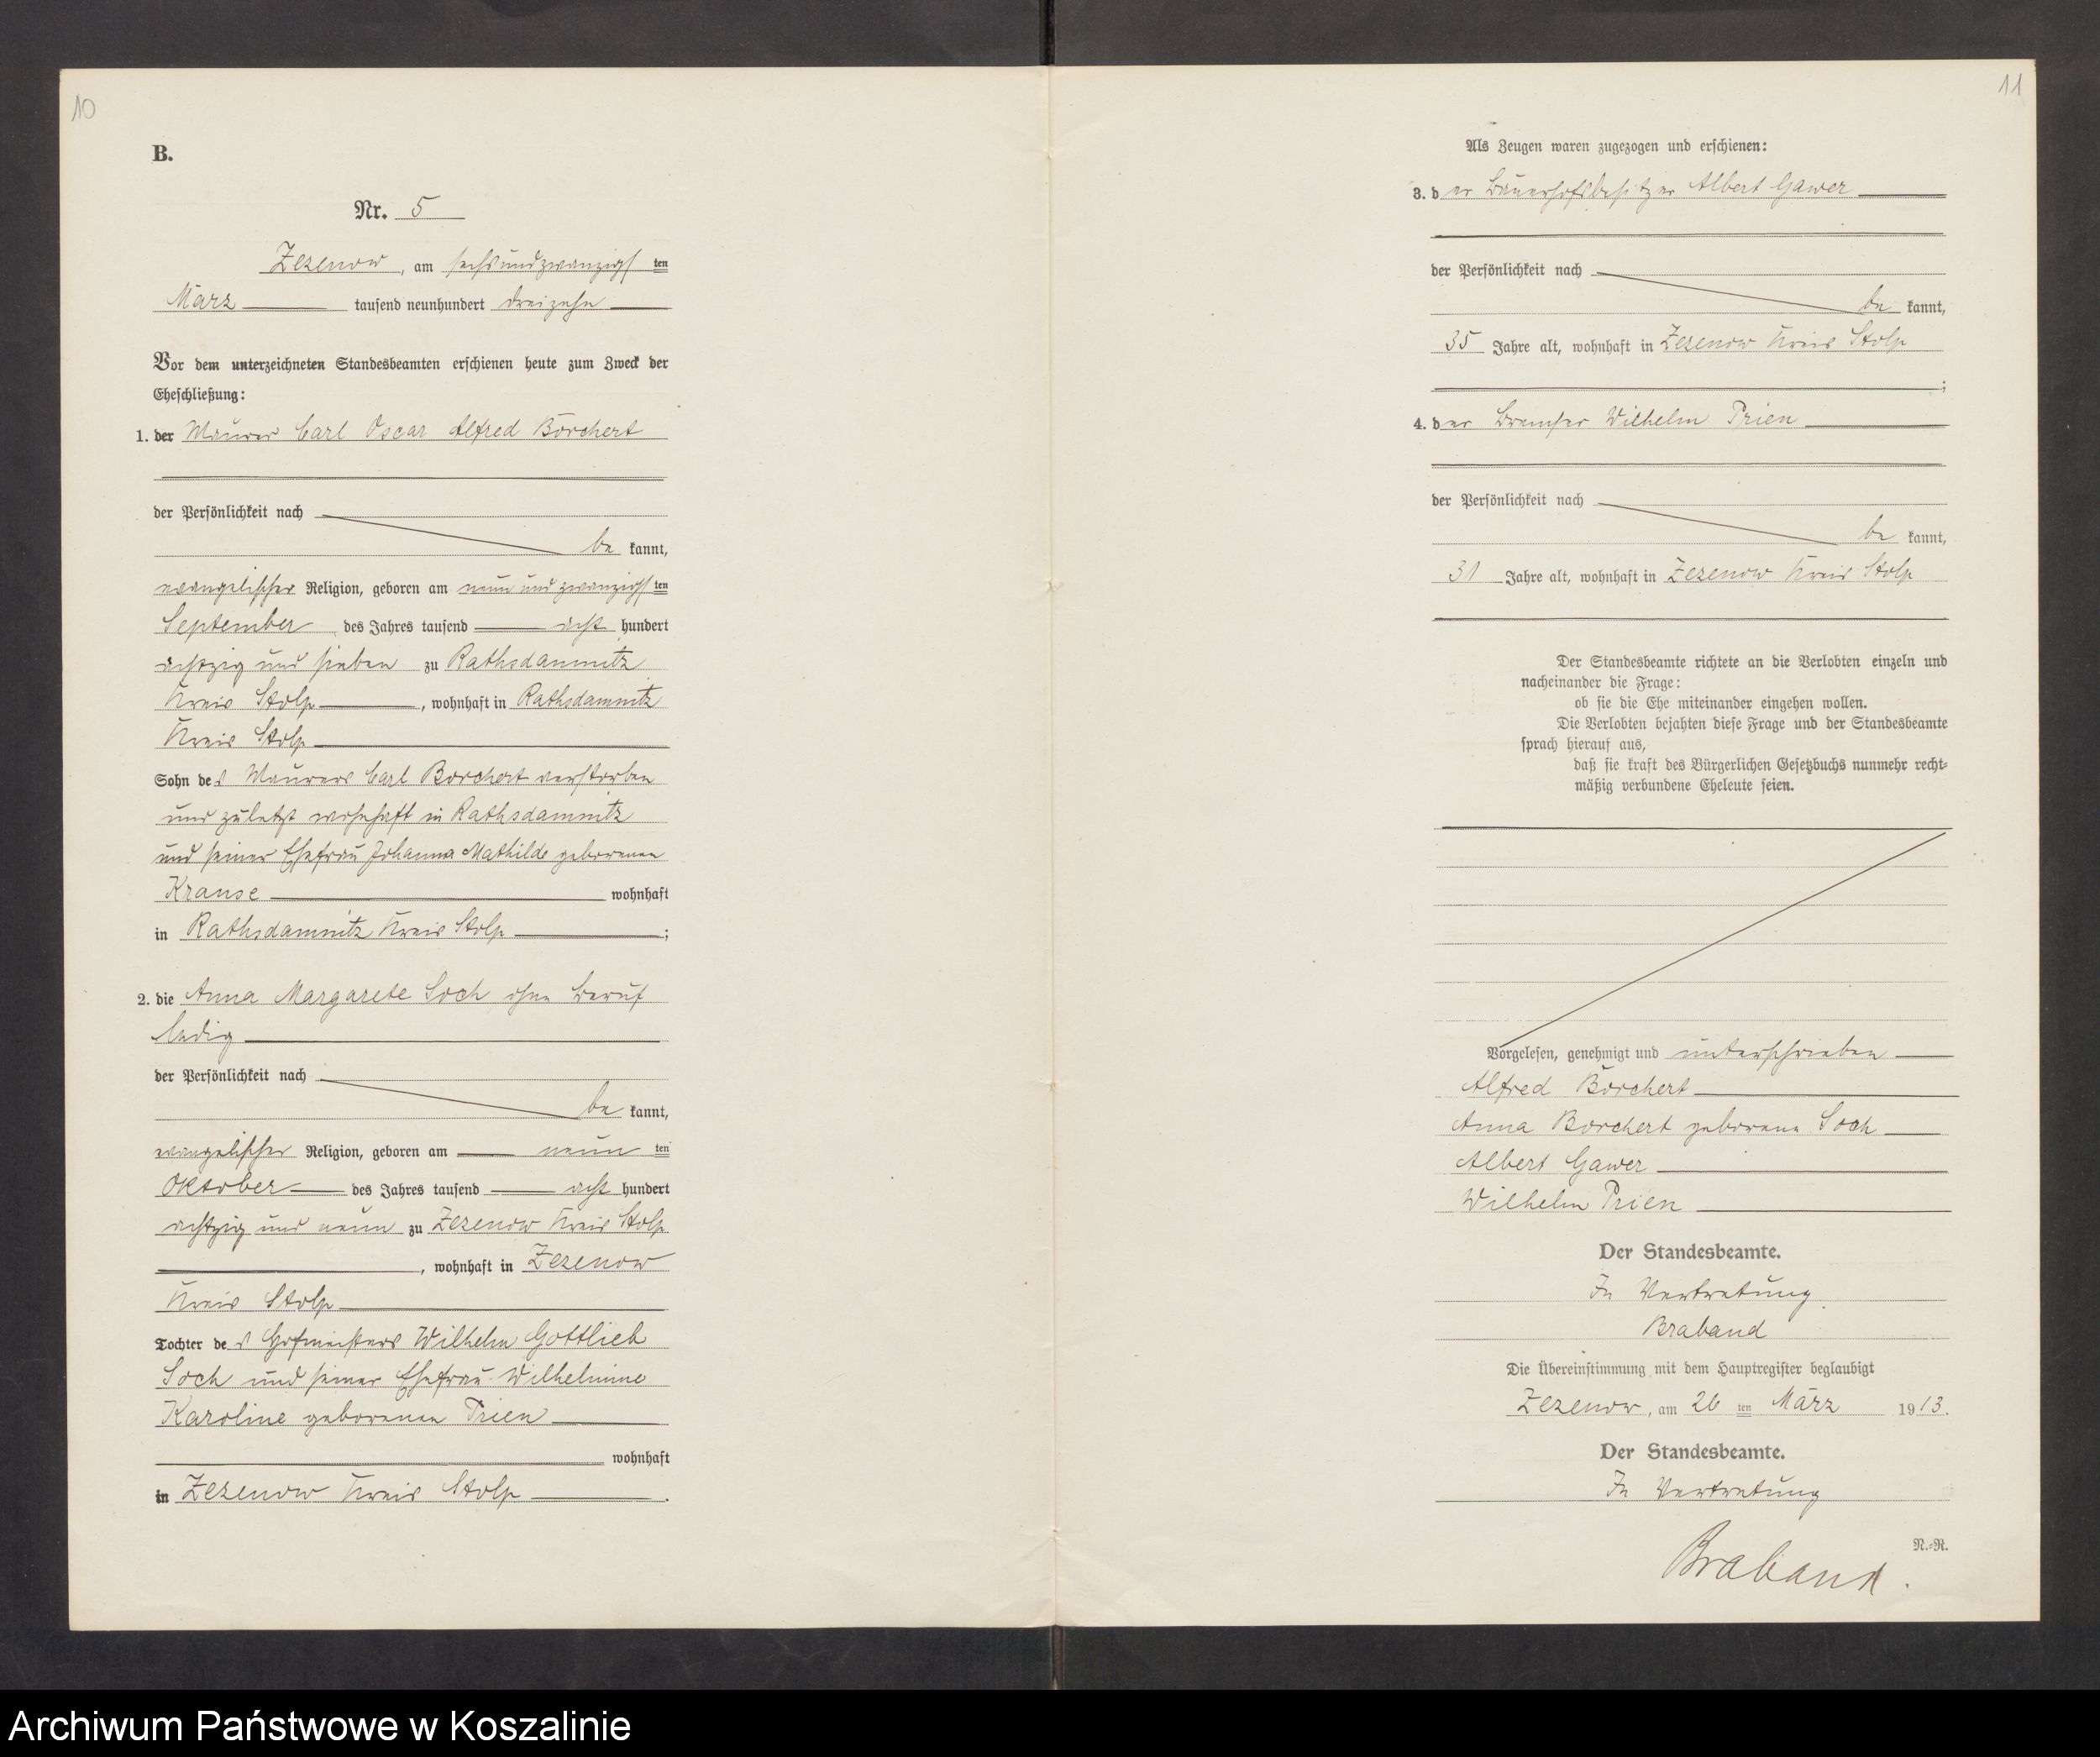 10
B.
Nr. 5
Zezenow, am sechsundzwanzigsten
März tausend neunhundert dreizehn
Vor dem unterzeichneten Standesbeamten erschienen heute zum Zweck der
Eheschließung:
1. der Maurer Carl Oscar Alfred Borchert
der Persönlichkeit nach
bekannt,
evangelischer Religion, geboren am neunundzwanzigsten
September des Jahres tausend acht hundert
achtzig und sieben zu Rathsdamnitz
Kreis Stolp, wohnhaft in Rathsdamnitz
Kreis Stolp
Sohn des Maurers Carl Borchert verstorben
und zuletzt wohnhaft in Rathsdamnitz
und seiner Ehefrau Johanna Mathilde geborenen
Krause wohnhaft
in Rathsdamnitz Kreis Stolp;
2. die Anna Margarete Soch ohne Beruf
ledig
der Persönlichkeit nach
bekannt,
evangelischer Religion, geboren am neunten
Oktober des Jahres tausend acht hundert
achtzig und neun zu Zezenow Kreis Stolp
, wohnhaft in Zezenow
Kreis Stolp
Tochter des Hofmeisters Wilhelm Gottlieb
Soch und seiner Ehefrau Wilhelmine
Karoline geborenen Prien
wohnhaft
in Zezenow Kreis Stolp.
11
Als Zeugen waren zugezogen und erschienen:
3. der Bauerhofsbesitzer Albert Gawer
der Persönlichkeit nach
bekannt,
35 Jahre alt, wohnhaft in Zezenow Kreis Stolp
;
4. der Bremser Wilhelm Prien
der Persönlichkeit nach
bekannt,
31 Jahre alt, wohnhaft in Zezenow Kreis Stolp
Der Standesbeamte richtete an die Verlobten einzeln und
nacheinander die Frage:
ob sie die Ehe miteinander eingehen wollen.
Die Verlobten bejahten diese Frage und der Standesbeamte
sprach hierauf aus,
daß sie kraft des Bürgerlichen Gesetzbuchs nunmehr recht-
mäßig verbundene Eheleute seien.
Vorgelesen, genehmigt und unterschrieben
Alfred Borchert
Anna Borchert geborene Soch
Albert Gawer
Wilhelm Prien
Der Standesbeamte.
In Vertretung
Braband
Die Übereinstimmung mit dem Hauptregister beglaubigt
Zezenow, am 26 ten März 1913.
Der Standesbeamte.
In Vertretung
N.-R.
Braband.
Archiwum Państwowe w Koszalinie